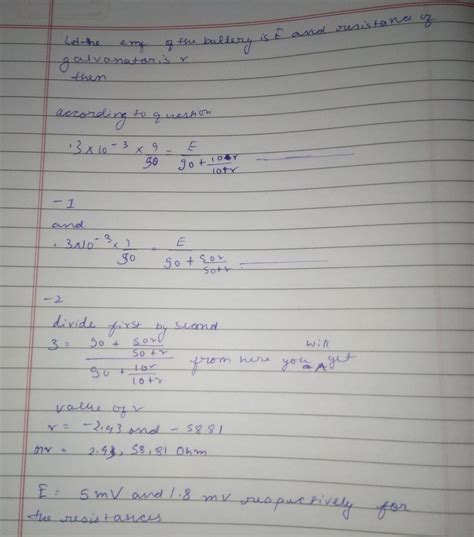 Let the emf of the battery is E and resistance of
galvanator is r
then
according to question
.3×10⁻³ × 9/50 = E / (90 + 10r/(10+r))
-1
and
.3×10⁻³ × 3/90 = E / (90 + 50r/(50+r))
-2
divide first by second
3 = (90 + 50r/(50+r)) / (90 + 10r/(10+r)) from here you will get
value of r
r = -2.43 and -58.81
r = 2.43, 58.81 Ohm
E = 5mV and 1.8 mV respectively for
the resistances